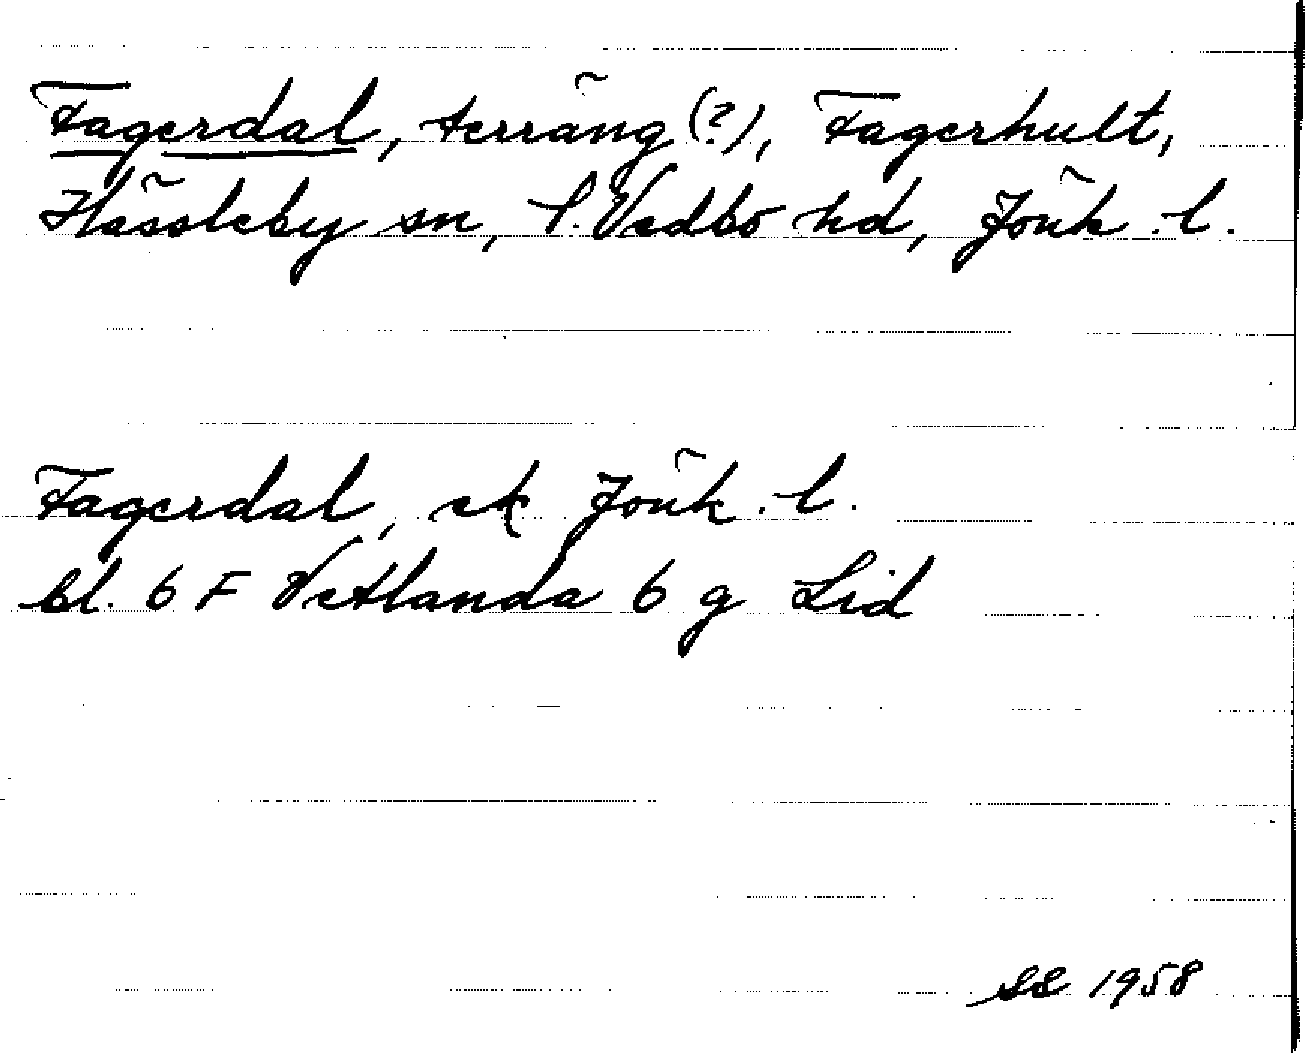 Fagerdal, terräng (?), Fagerhult,
Hässleby sn, S. Vedbo hd, Jönk. l.
Fagerdal, ek Jönk. l.
bl. 6 F Vetlanda 6 g Lid
SE 1958